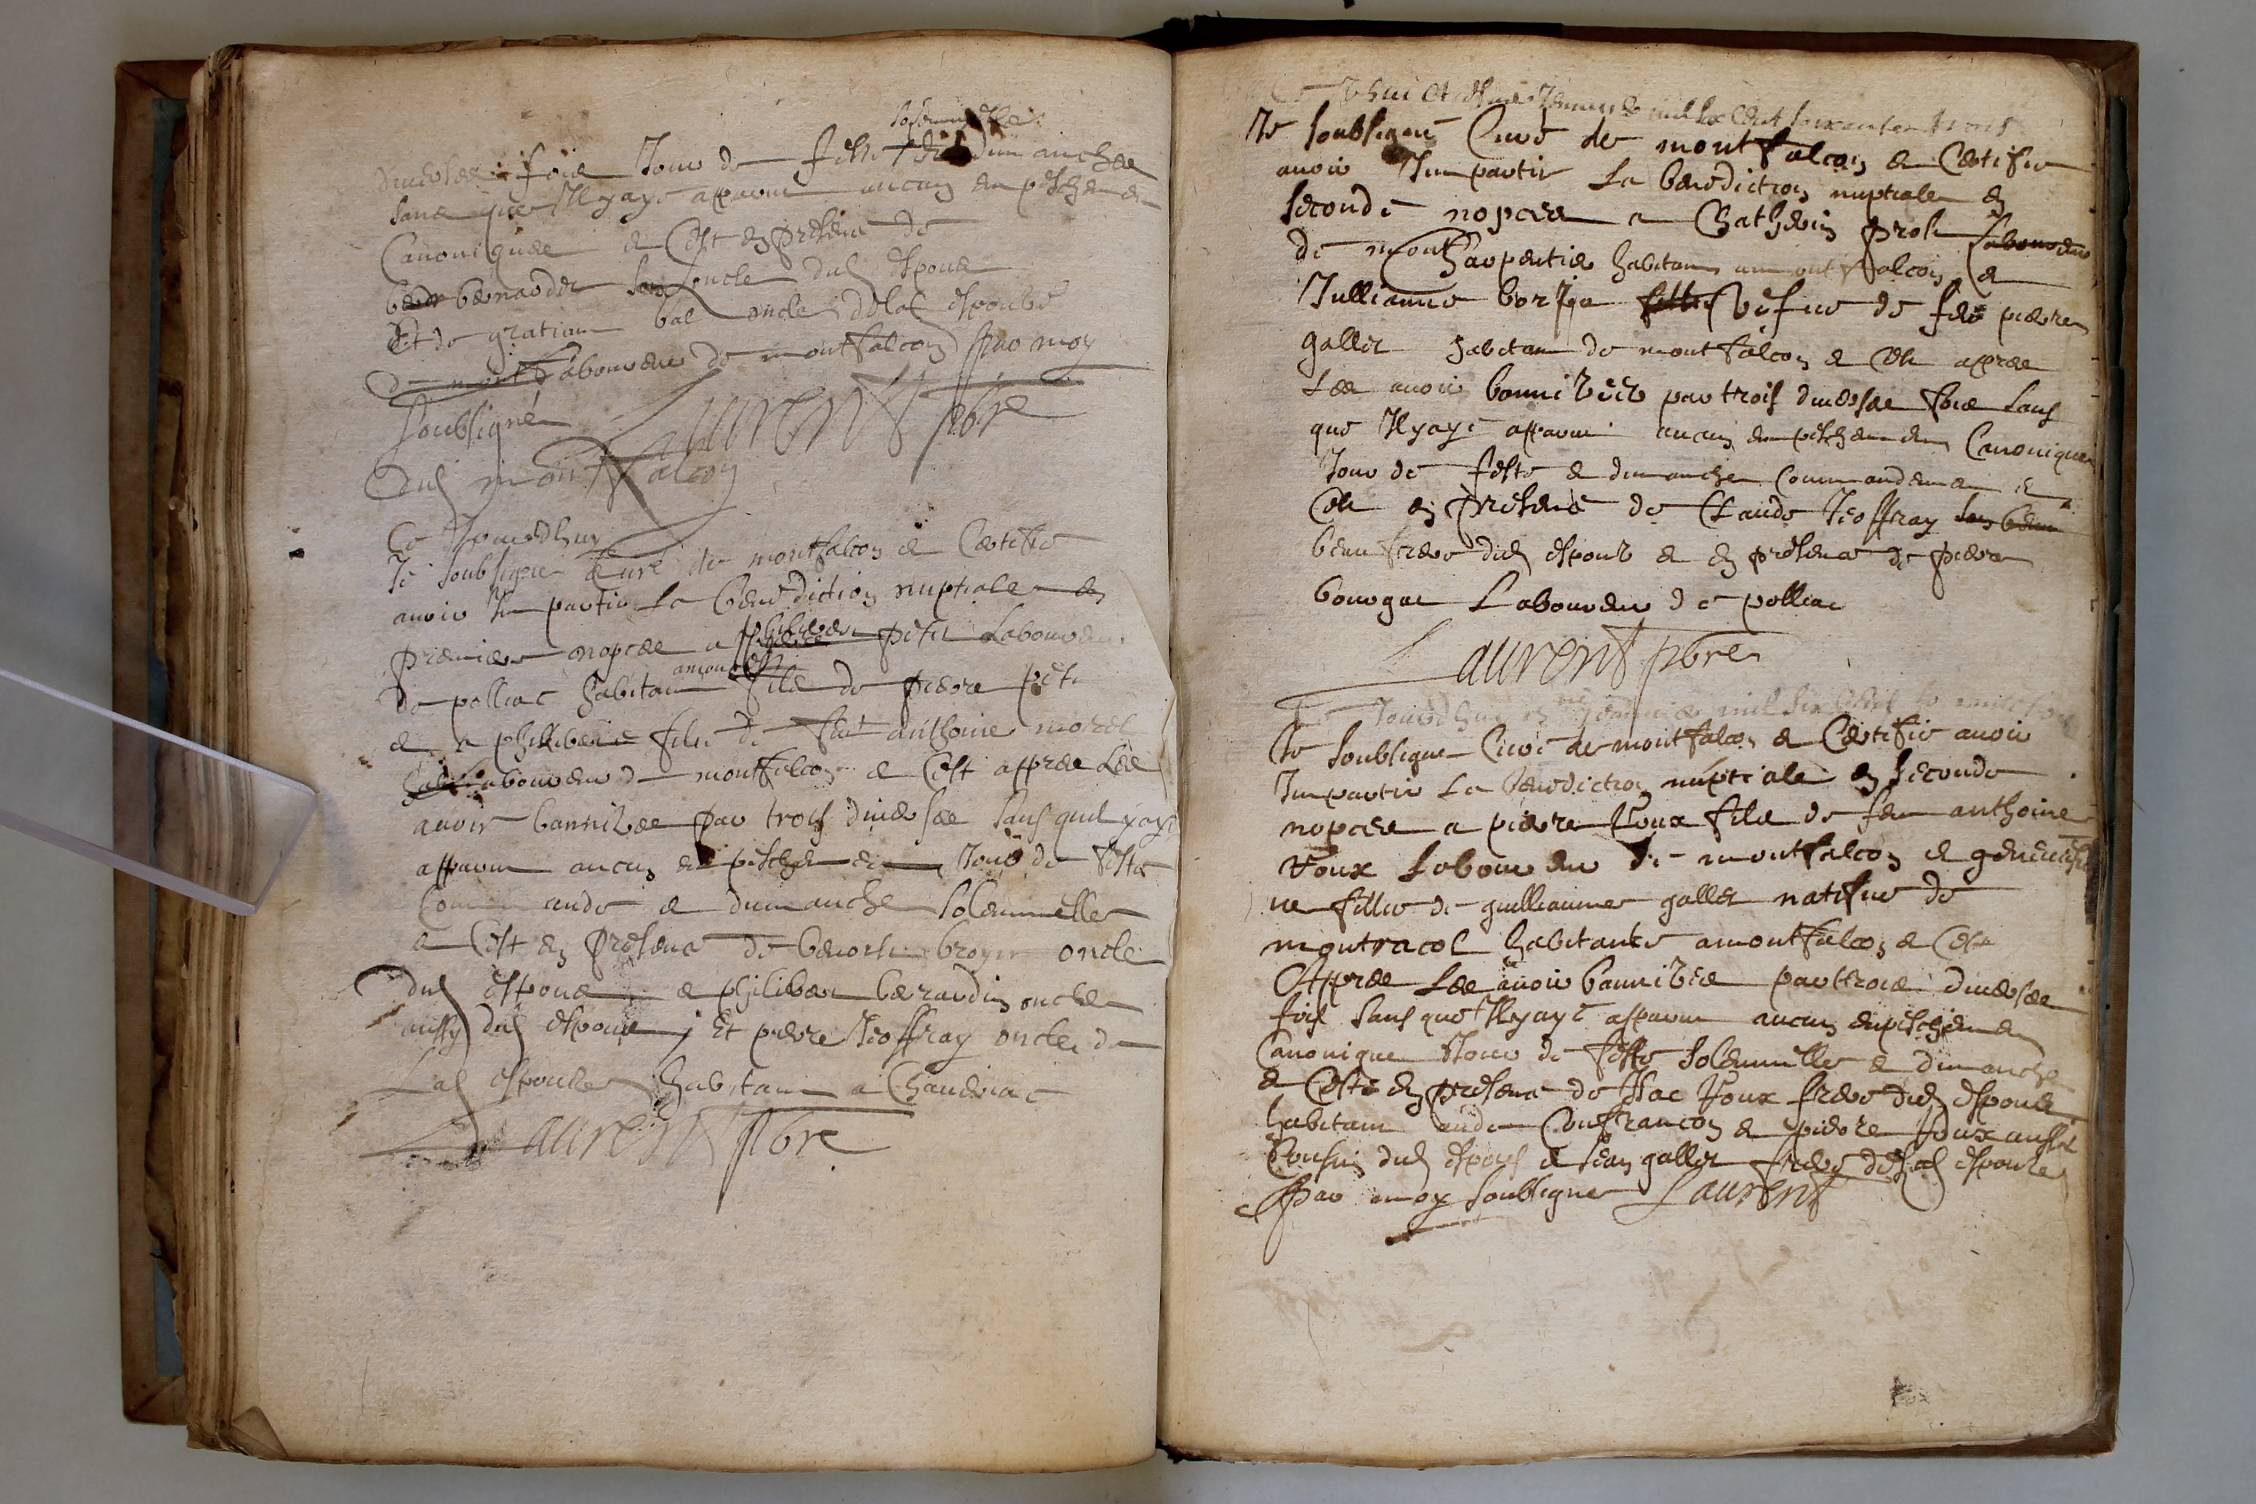 solemnelle
diuerses fois Jour de feste et dimanches
sans que Il y aye apparu aucun empeschemen
Canoniques et Cest en presence de
bernardin oncle dud espoux
Et de gratian bal oncle delad espouse
laboureur de montfalcon Par moy
soubsigné Laurent pbre
Cud montfalcon
Ce Jourdhuy
Je soubsigné Curé de montfalcon et Certifie
auoir Impartir La benediction nuptiale en
premiere nopces a philibert petit Laboureur
de polliac habitant fils de pierre petit
amont
et a philiberte fille de feut anthoine morel
laboureur de montfalcon et Cest appres Les
auoir bannizes par trois diuerses sans quil y aye
apparu aucun empeschemen Jour de feste
Commande et dimanche solemnelle
et Cest en presence de benoist broyer oncle
dud espoux et philibert berardin oncle
aussy dud espoux Et pierre Jeoffray oncle de
Lad espouse habitant a Chaueiriac
Laurent pbre
Jenuier mil six Cent soixante trois
Je soubsigné Curé de montfalcon et Certifie
auoir Impartir La benediction nuptiale en
seconde nopces a Catherin prost laboureur
de montfalcon et
Jullianne vefue de feu pierre
gallet habitant de montfalcon et Cest apres
Les auoir bannizées par trois diuerses fois sans
que Il y aye apparu aucun empeschemen Canonique
Jour de feste et dimanche Commandemen et
Cest en presence de Claude Jeoffray
beau frere dud espoux et en presence de pierre
bourgat Laboureur de polliac
Laurent pbre
Ce Jourdhuy Jenuier mil six Cent
Je soubsigné Curé de montfalcon et Certifie auoir
Impartir La benediction nuptiale en seconde
nopces a pierre Voux fils de feu anthoine
Voux Laboureur de montfalcon et geneuiefue
fillie de guilliaume gallet natifue de
montracol habitante a montfalcon et Cest
Appres Les auoir bannizes par trois diuerses
fois sans que Il y aye apparu aucun enpeschemen
Canonique Jour de feste solemnelle et dimanche
et Cest en presence de Isac Voux frere dud espoux
habitant Confrancon et pierre Voux aussi
Cousin dud espoux et Jean gallet frere delad espouse
Par moy soubsigne Laurent